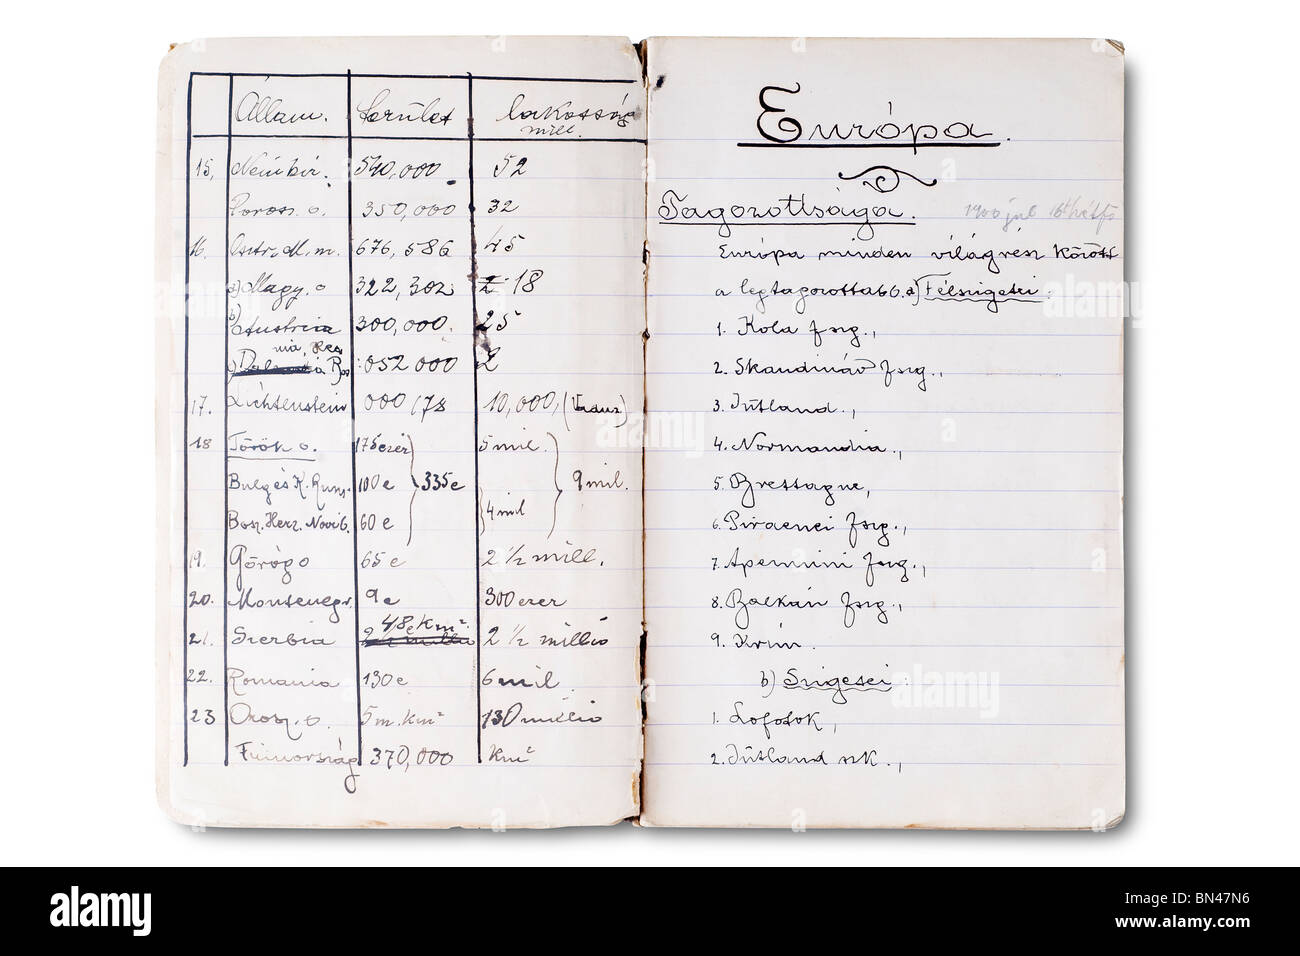 Állam. terület lakosság
mill.
15, Ném bir. 540,000 52
Porosz. o. 350,000 32
16. Osztr. M. m. 676,586 45
a) Magy. o 322,302 18
b) Austria 300,000. 25
052 000 2
17. Lichtenstein 000 178 10,000, (Vaduz)
18 Török o. 175 ezer 5 mil.
Bulg és K. Rum. 100 e 335 e 9 mil.
Bosz. Herz. Novib. 60 e 4 mil
19. Görögo 65 e 2 1/2 mill.
20. Montenegr. 9 e 300 ezer
48 e Km².
21. Szerbia 2 1/2 millio
22. Romania 130 e 6 mil.
23 Orosz. o. 5 m. km² 130 millio
Finnország 370,000 km²
Európa.
Tagozottsága. 1900 jul 16 hétfő
Európa minden világrész között
a legtagozottabb. a) Félszigetei:
1. Kola fszg.,
2. Skandináv fszg.,
3. Jütland.,
4. Normandia.,
5. Brettagne,
6. Piraenei fszg.,
7. Apennini fszg.,
8. Balkán fszg.,
9. Krím.
b) Szigetei:
1. Lofotok,
2. Jütland szk.,
alamy
Image ID: BN47N6
www.alamy.com